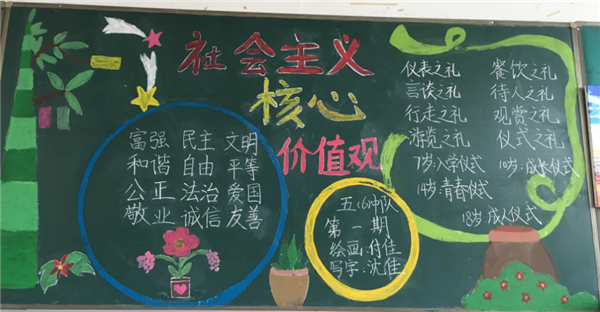 社会主义
核心
价值观
富强 民主 文明
和谐 自由 平等
公正 法治 爱国
敬业 诚信 友善
五(6)中队
第一期
绘画:付佳
写字:沈佳
仪表之礼 餐饮之礼
言谈之礼 待人之礼
行走之礼 观赏之礼
游览之礼 仪式之礼
7岁:入学仪式 10岁:成长仪式
14岁:青春仪式
18岁:成人仪式